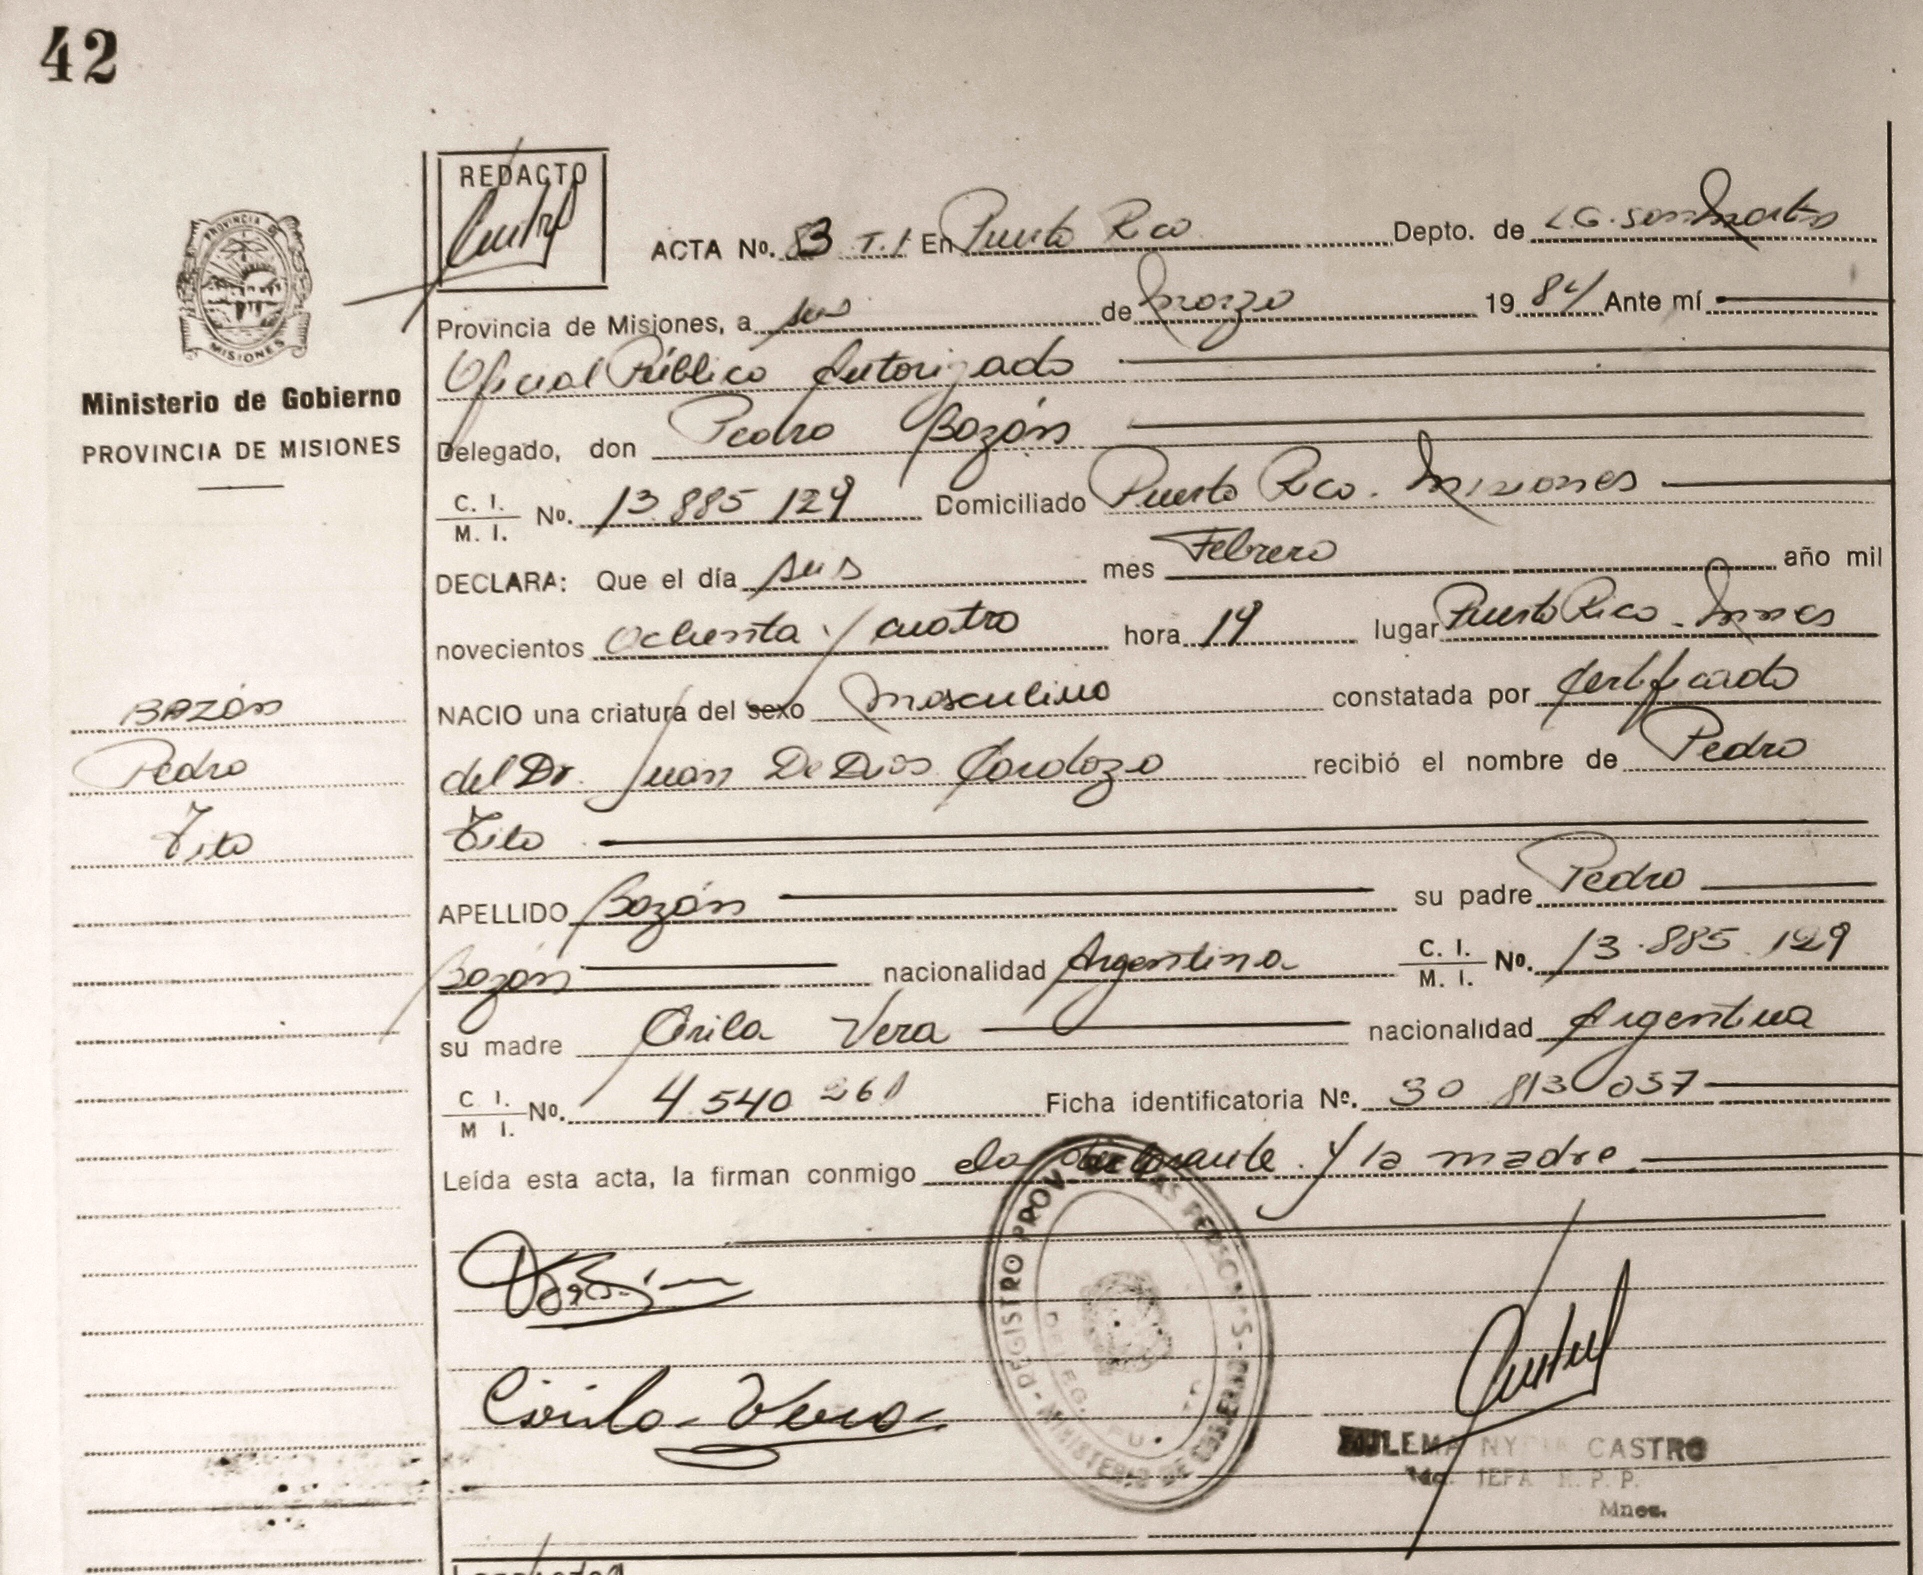 42
REDACTO
PROVINCIA DE
MISIONES
Ministerio de Gobierno
PROVINCIA DE MISIONES
BAZÓN
Pedro
Tito
ACTA No. 83 T.I En Puerto Rico Depto. de L.G. San Martín
Provincia de Misiones, a seis de marzo 1984 Ante mí
Oficial Público Autorizado
Delegado, don Pedro Bazón
C. I. / M. I. No. 13.885 129 Domiciliado Puerto Rico. Misiones
DECLARA: Que el día seis mes Febrero año mil
novecientos Ochenta y cuatro hora 19 lugar Puerto Rico - Mnes
NACIO una criatura del sexo masculino constatada por Certificado
del Dr. Juan De Dios Cardozo recibió el nombre de Pedro
Tito
APELLIDO Bazón su padre Pedro
Bazón nacionalidad Argentina C. I. / M. I. No. 13.885.129
su madre Vera nacionalidad Argentina
C I. / M I. No. 4.540 261 Ficha identificatoria No. 30 813 057
Leída esta acta, la firman conmigo declarante y la madre
REGISTRO PROV. LAS PERSONAS - MINISTERIO DE GOBIERNO
DELEG.
Vera
CASTRO
Mnes.